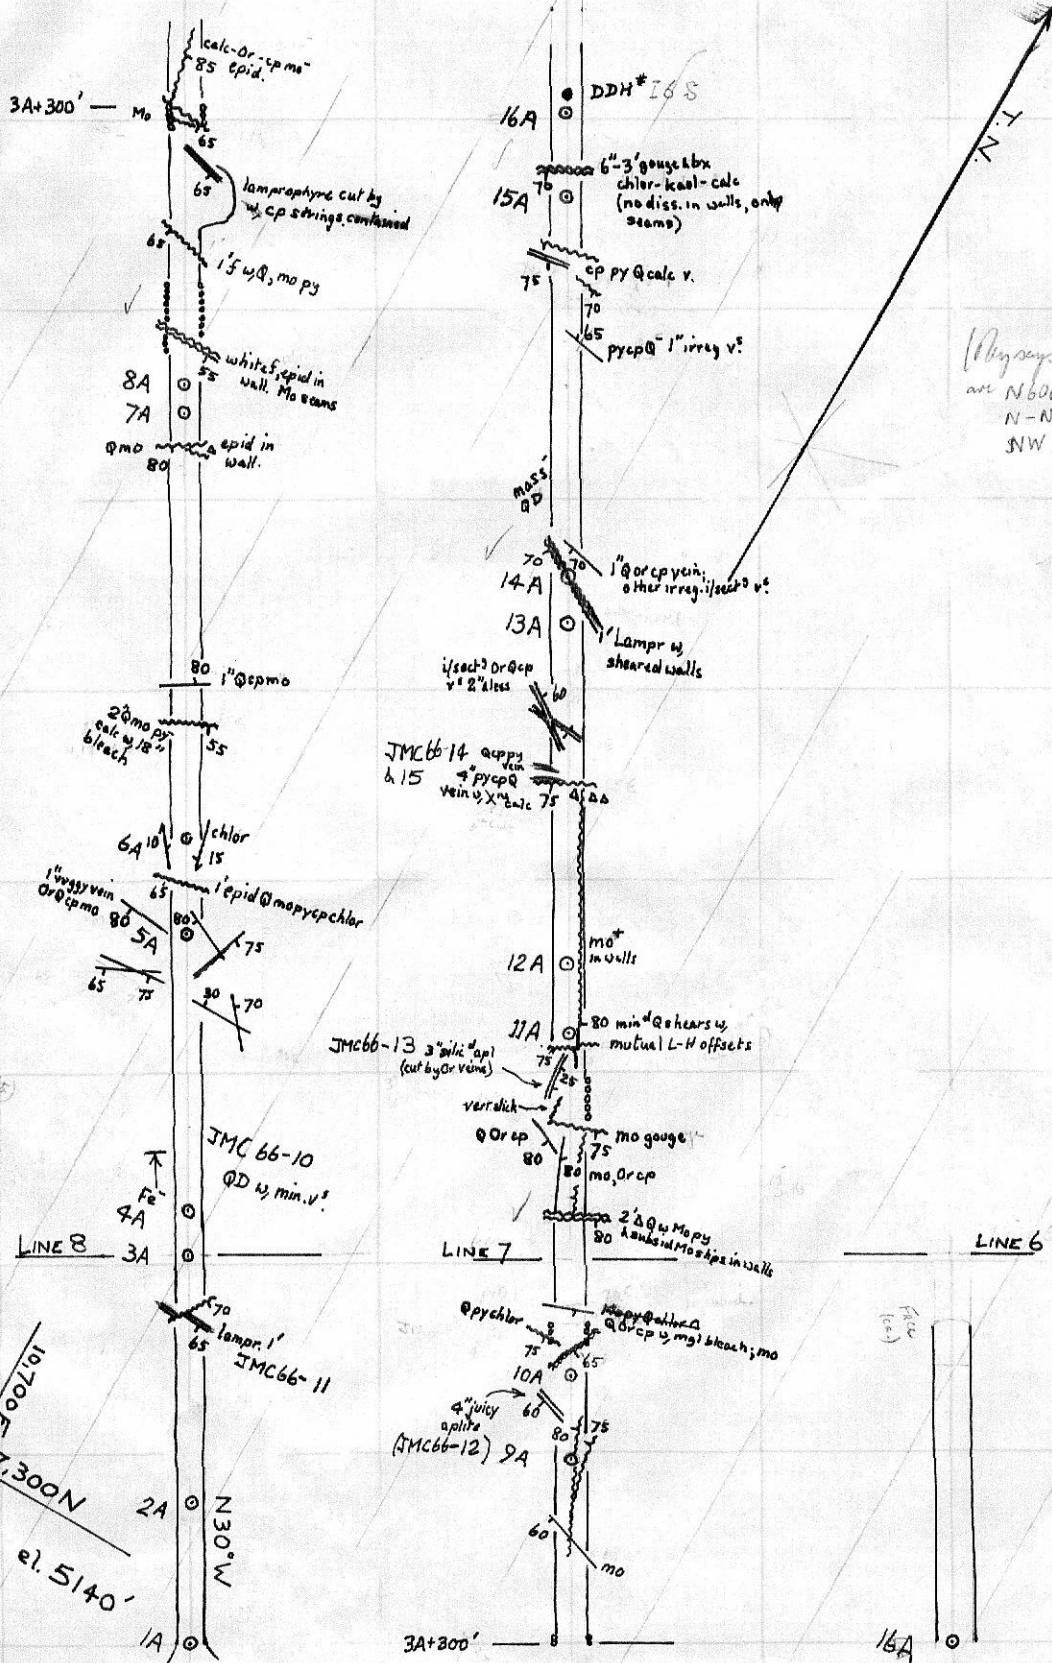 calc-Or-cp mo-
85 epid.
3A+300'
Mo
65
65
lamprophyre cut by
w, cp strings, contained
65
1'f w, Q, mo py
white f, epid in
wall. Mo seams
55
8A
7A
Qmo
epid in
wall.
80
80
1" Qcpmo
2" Qmo py
calc w, 18"
bleach
55
6A
10
chlor
15
65
1' epid Qmopycpchlor
1" vuggy vein
OrQcpmo
80
5A
80
75
65
75
30
70
JMC 66-10
QD w, min. vs.
Fe-
4A
LINE 8
3A
70
65
lampr. 1'
JMC66-11
10,700E
,300N
el. 5140'
2A
N30°W
1A
DDH #
16A
6"-3' gouge & bx
chlor-kaol-calc
(no diss. in walls, only
seams)
70
15A
cp py Q calc v.
75
70
65
pycpQ- 1" irreg vs.
mass'
QD
70
70
14A
1" Q or cp vein,
other irreg. i/sectg vs.
13A
1' Lampr w,
sheared walls
i/sectg OrQcp
vs 2" & less
60
JMC66-14
& 15
Qcppy
vein
4" pycpQ
vein w, Xn calc
75
mo+
in walls
12A
11A
80 mind Q shears w,
mutual L-H offsets
JMC66-13 3" silicd apl
(cut by Or veins)
75
25
vert. slick
QOr cp
80
mo gouge
75
80
mo, Or cp
2' Δ Q w Mopy
& subsid Mo slips in walls
80
LINE 7
Qpychlor
Mopy Q chlor Δ
QOrcp w, mgl bleach; mo
75
65
10A
4" juicy
aplite
(JMC66-12)
60
80
75
9A
60
mo
3A+300'
T.N.
are N60
N-N
NW
LINE 6
Face
(ca.)
16A